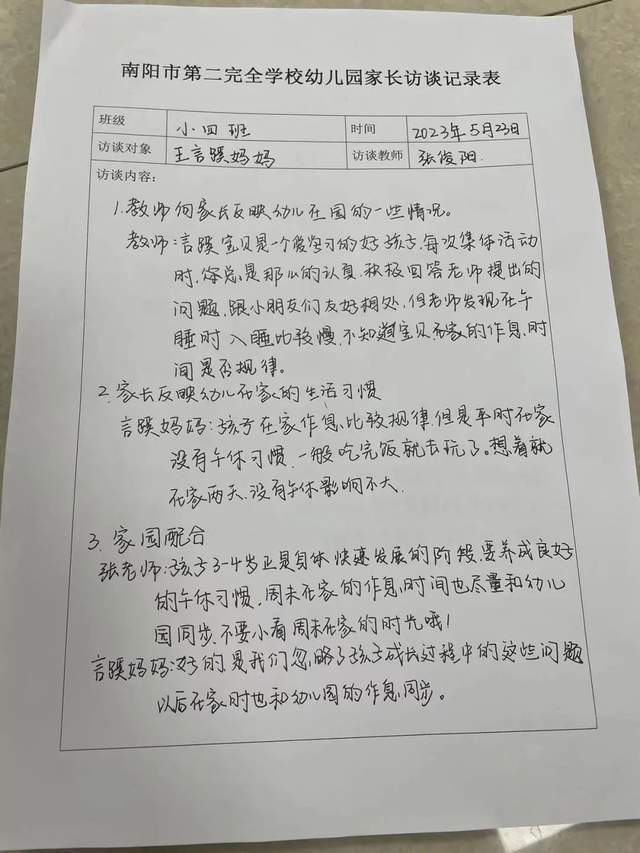 南阳市第二完全学校幼儿园家长访谈记录表
班级 小四班 时间 2023年5月23日
访谈对象 王言蹊妈妈 访谈教师 张俊阳
访谈内容：
1.教师向家长反映幼儿在园的一些情况。
教师：言蹊宝贝是一个爱学习的好孩子，每次集体活动
时，您总是那么的认真，积极回答老师提出的
问题，跟小朋友们友好相处，但老师发现在午
睡时入睡比较慢，不知道宝贝在家的作息时
间是否规律。
2.家长反映幼儿在家的生活习惯
言蹊妈妈：孩子在家作息比较规律，但是平时在家
没有午休习惯，一般吃完饭就去玩了。想着就
在家两天，没有午休影响不大。
3.家园配合
张老师：孩子3-4岁正是身体快速发展的阶段，要养成良好
的午休习惯，周末在家的作息时间也尽量和幼儿
园同步，不要小看周末在家的时光哦！
言蹊妈妈：好的是我们忽略了孩子成长过程中的这些问题
以后在家时也和幼儿园的作息同步。